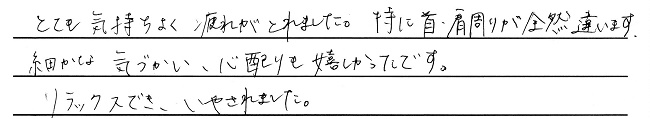 とても気持ちよく疲れがとれました。特に首・肩周りが全然違います.
細かな気づかい、心配りも嬉しかったです。
リラックスでき、いやされました。